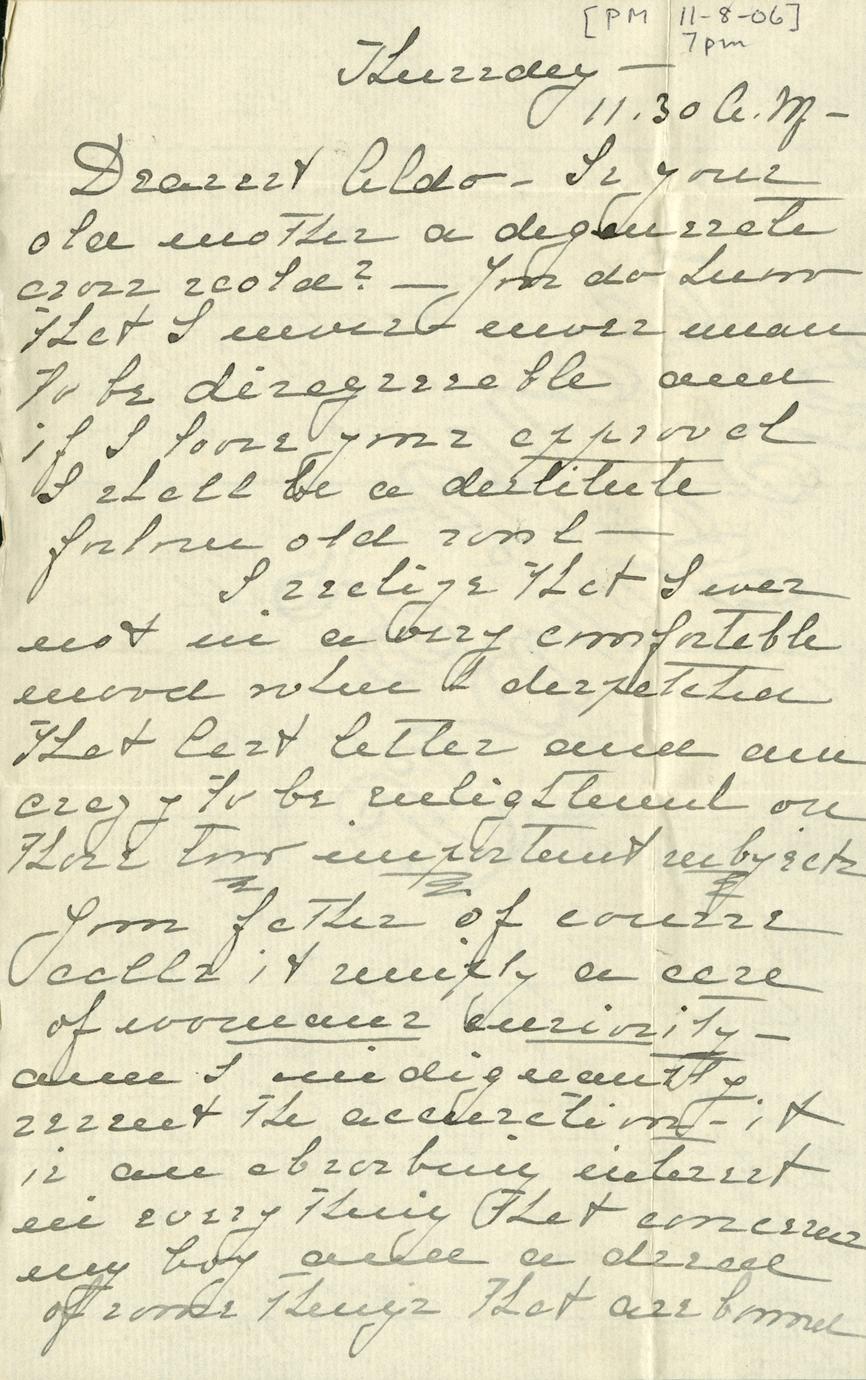 [PM 11-8-06]
7pm
Thursday —
11.30 A.M —
Dearest Aldo - Is your
old mother a degenerate
cross scold? — You do know
that I never never mean
to be disagreeable and
if I loose your approval
I shall be a destitute
forlorn old soul —
I realize that I was
not in a very comfortable
mood when I despatched
that last letter and am
crazy to be enlightened on
those two important subjects
Your father of course
calls it simply a case
of womans curiosity —
and I indignantly
resent the accusation - it
is an absorbing interest
in every thing that concerns
my boy and a dread
of some things that are bound